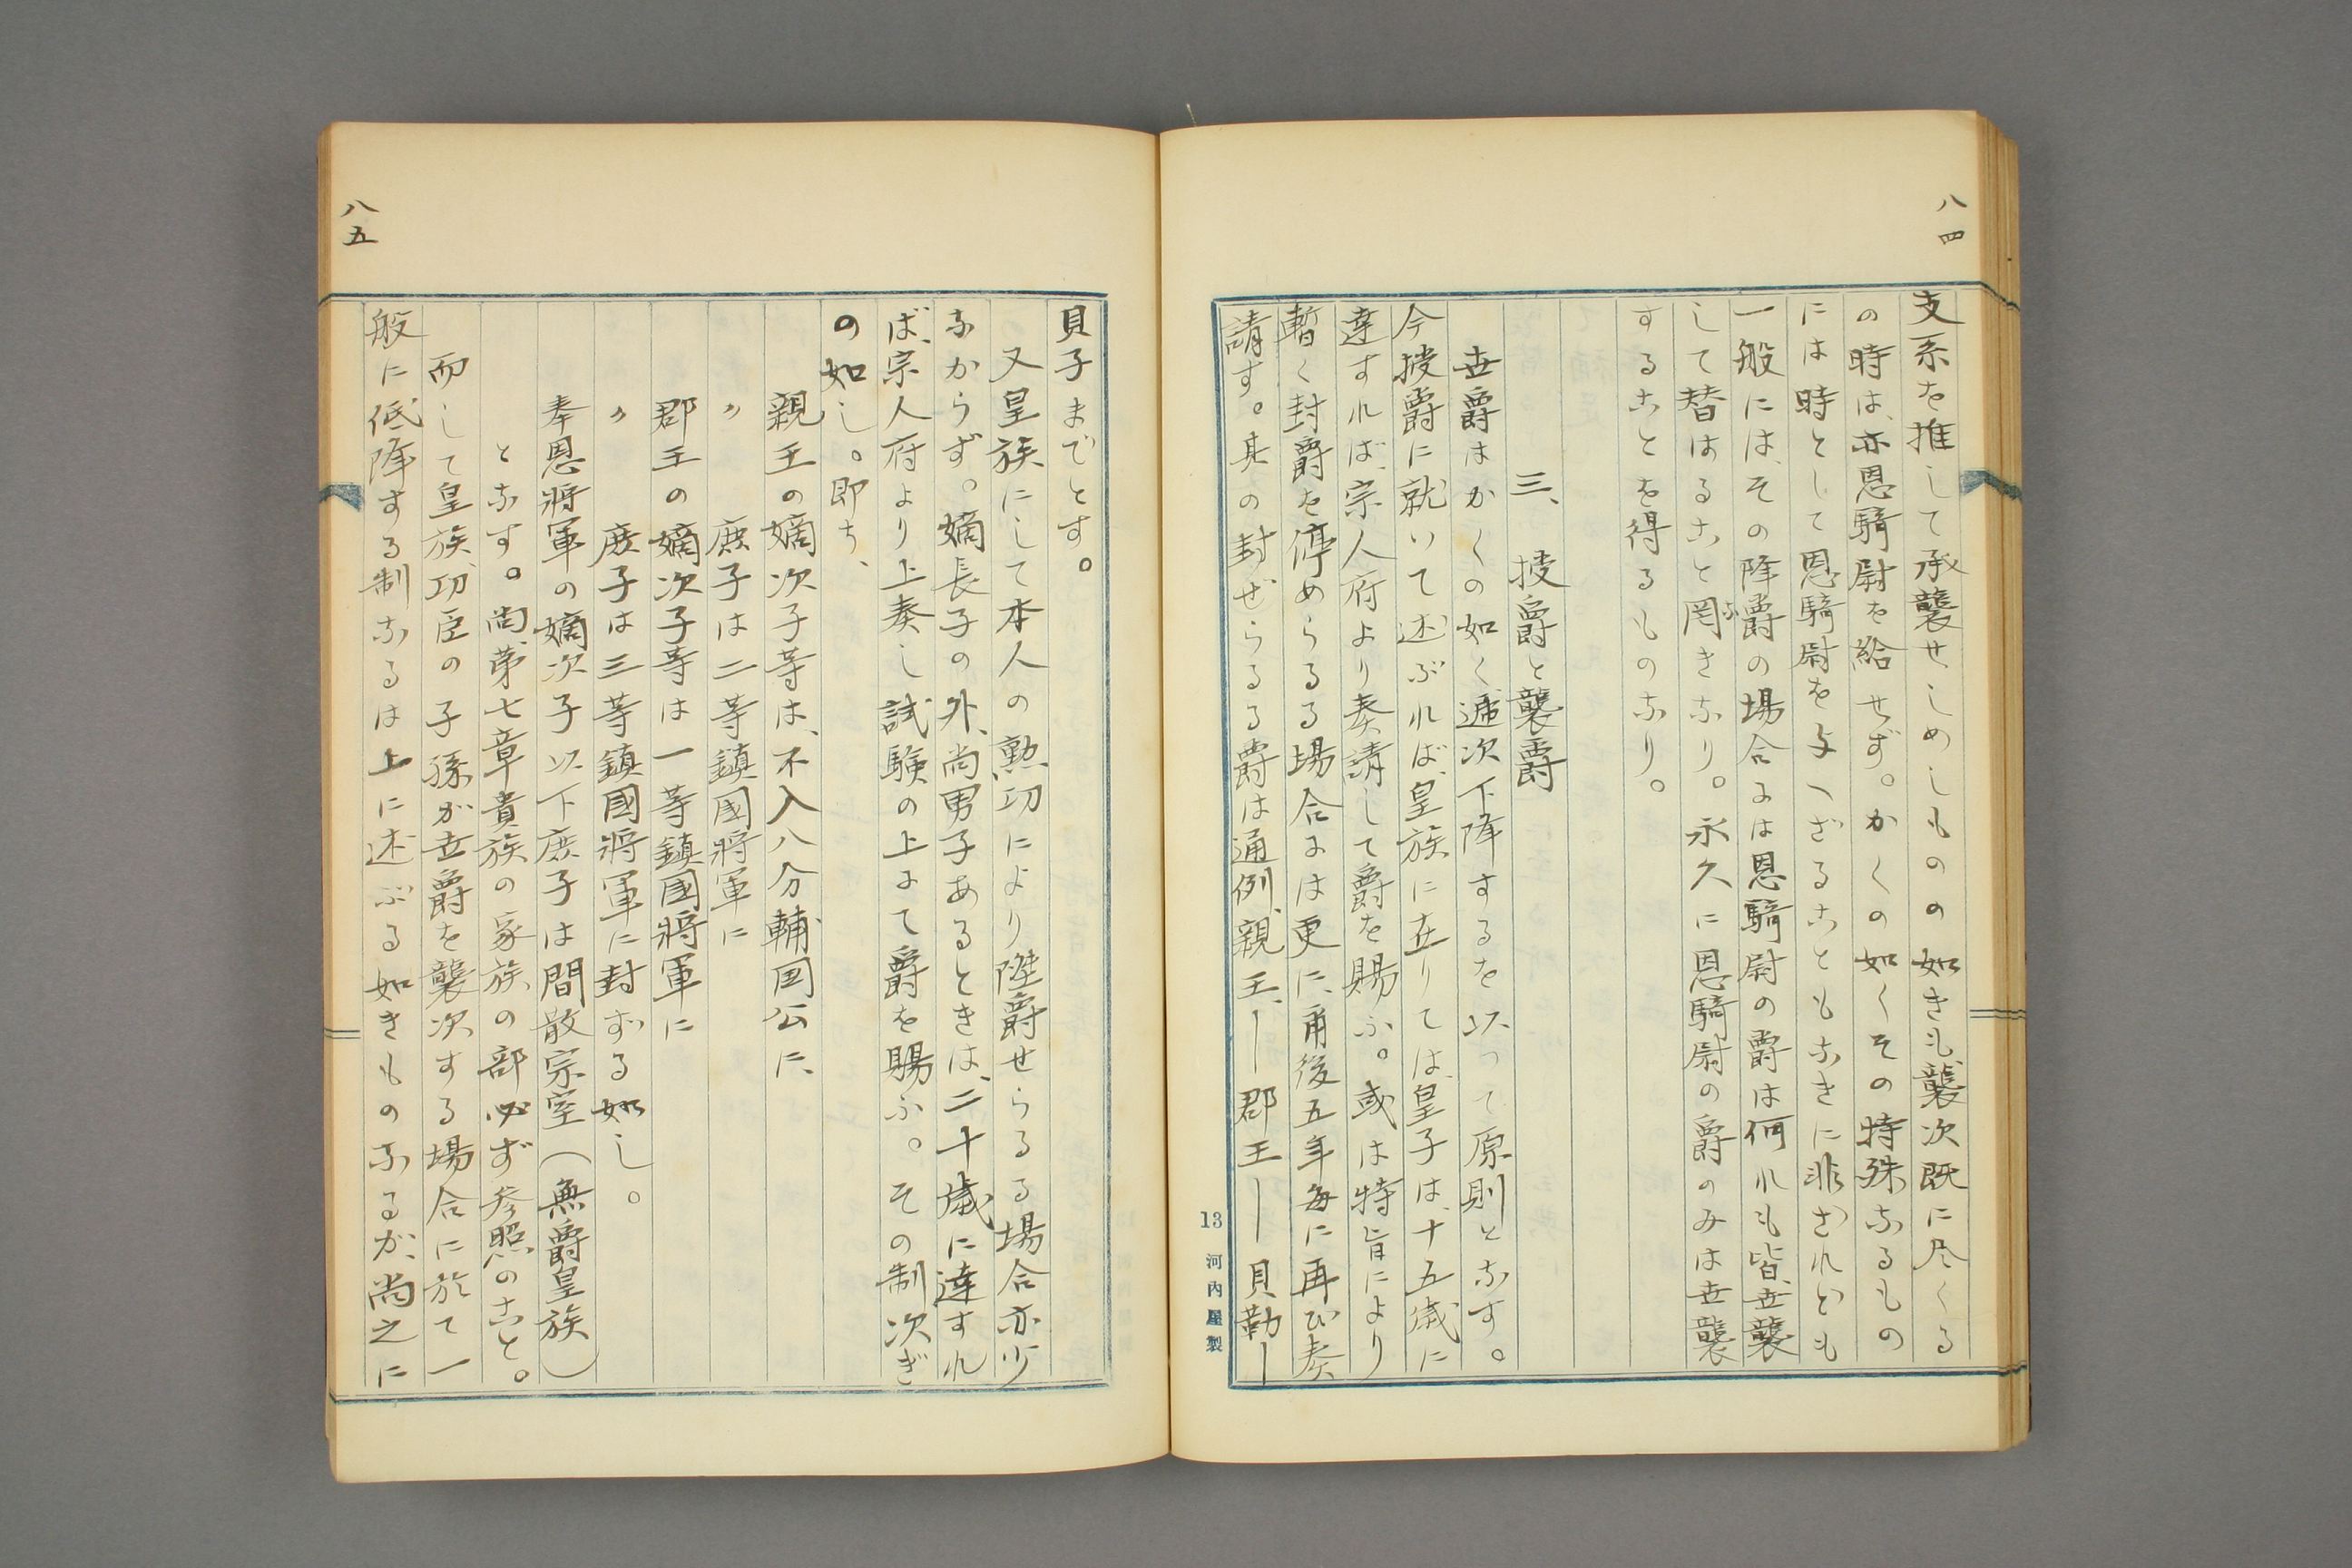 八四
支系を推して承襲せしめしものの如きも、襲次既に尽くる
の時は、亦恩騎尉を給せず。かくの如くその特殊なるもの
には時として恩騎尉を与へざることもなきに非ざれども
一般には、その降爵の場合には恩騎尉の爵は何れも皆、世襲
して替はること罔きなり。永久に恩騎尉の爵のみは世襲
することを得るものなり。
三、授爵と襲爵
世爵はかくの如く遞次下降するを以つて原則となす。
今授爵に就いて述ぶれば、皇族に在りては、皇子は、十五歳に
達すれば、宗人府より奏請して爵を賜ふ。或は特旨により
暫く封爵を停めらるる場合には更に、甭後五年毎に再び奏
請す。其の封ぜらるる爵は通例、親王、―郡王―貝勒―
13 河内屋製
八五
貝子までとす。
又皇族にして本人の勲功により陞爵せらるる場合亦少
なからず。嫡長子の外、尚男子あるときは、二十歳に達すれ
ば、宗人府より上奏し試験の上にて爵を賜ふ。その制次ぎ
の如し。即ち、
親王の嫡次子等は、不入八分輔国公に、
〃 庶子は二等鎮國將軍に
郡王の嫡次子等は一等鎮國將軍に
〃 庶子は三等鎮國將軍に封ずる如し。
奉恩將軍の嫡次子以下庶子は間散宗室(無爵皇族)
となす。尚、第七章貴族の家族の部必ず参照のこと。
而して皇族、功臣の子孫が世爵を襲次する場合に於て一
般に低降する制なるは上に述ぶる如きものなるが、尚之に